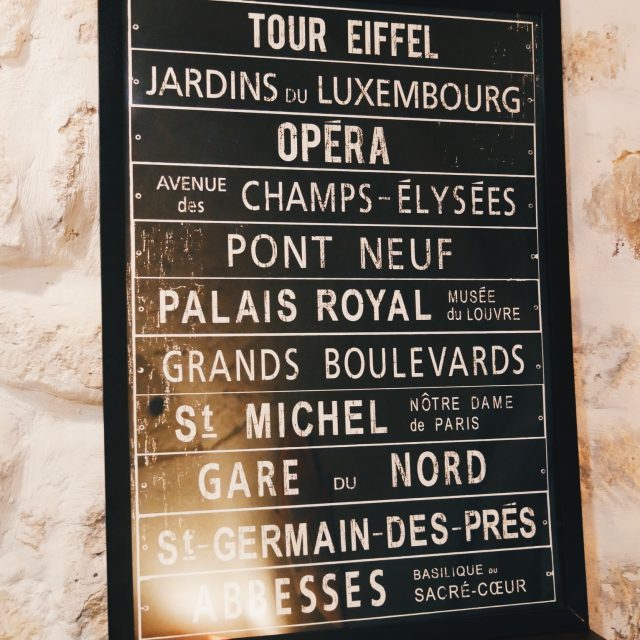 TOUR EIFFEL
JARDINS DU LUXEMBOURG
OPÉRA
AVENUE des CHAMPS-ÉLYSÉES
PONT NEUF
PALAIS ROYAL MUSÉE du LOUVRE
GRANDS BOULEVARDS
St MICHEL NÔTRE DAME de PARIS
GARE DU NORD
St-GERMAIN-DES-PRÉS
ABBESSES BASILIQUE du SACRÉ-CŒUR